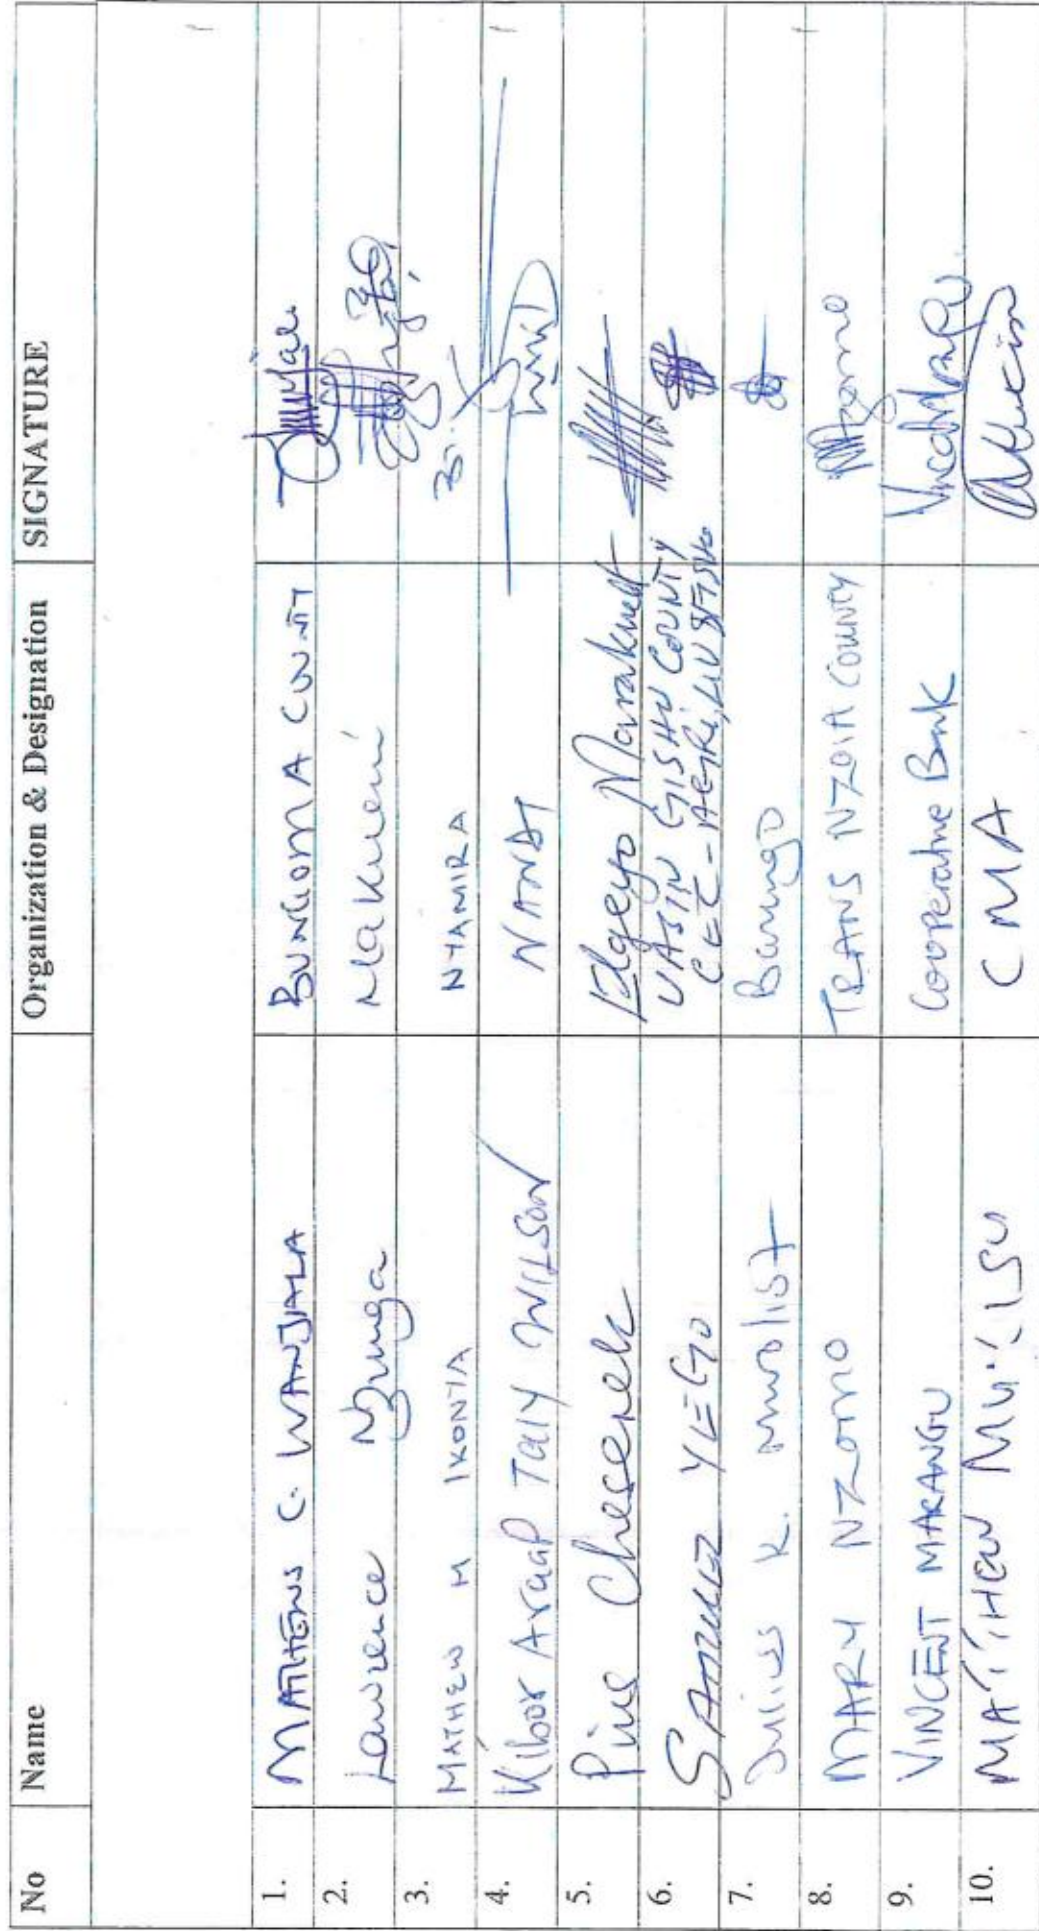 No Name Organization & Designation SIGNATURE
1. MATHEWS C. WANJALA BUNGOMA COUNTY
2. Lawrence Nzunga Makueni
3. MATHEW M IKONYA NYAMIRA
4. Kibor Arap Taly WILSON NANDI
5. Pius Cheserek Elgeyo Marakwet
6. SAMUEL YEGO UASIN GISHU COUNTY
CEC - AGRI, LIV & FISH
7. Julius K. Baringo
8. MARY NZOMO TRANS NZOIA COUNTY
9. VINCENT MARANGU Cooperative Bank
10. MATTHEW CMA